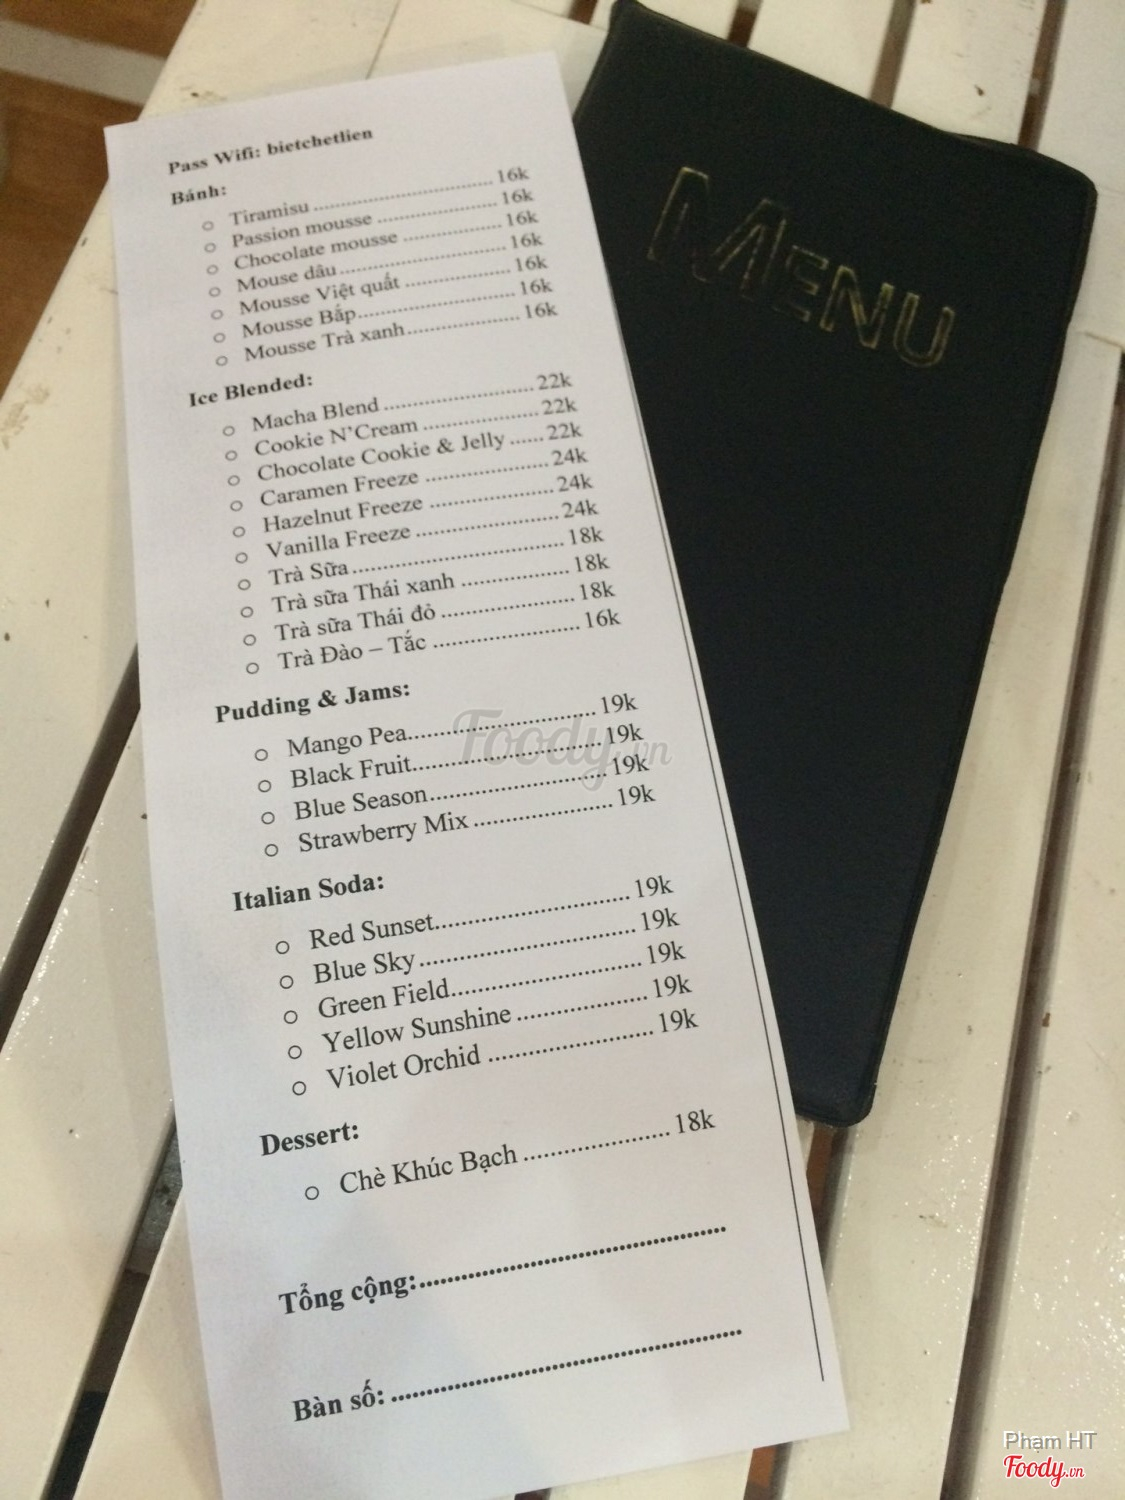 Pass Wifi: bietchetlien
Bánh:
○ Tiramisu ................................ 16k
○ Passion mousse ..................... 16k
○ Chocolate mousse ................. 16k
○ Mouse dâu ............................. 16k
○ Mousse Việt quất ................... 16k
○ Mousse Bắp............................ 16k
○ Mousse Trà xanh.................... 16k
Ice Blended:
○ Macha Blend ......................... 22k
○ Cookie N'Cream .................... 22k
○ Chocolate Cookie & Jelly ...... 22k
○ Caramen Freeze ..................... 24k
○ Hazelnut Freeze ..................... 24k
○ Vanilla Freeze ........................ 24k
○ Trà Sữa ................................... 18k
○ Trà sữa Thái xanh .................. 18k
○ Trà sữa Thái đỏ ...................... 18k
○ Trà Đào – Tắc ........................ 16k
Pudding & Jams:
○ Mango Pea............................. 19k
○ Black Fruit............................. 19k
○ Blue Season........................... 19k
○ Strawberry Mix ..................... 19k
Italian Soda:
○ Red Sunset............................. 19k
○ Blue Sky ................................ 19k
○ Green Field............................ 19k
○ Yellow Sunshine ................... 19k
○ Violet Orchid ........................ 19k
Dessert:
○ Chè Khúc Bạch ..................... 18k
Tổng cộng:..................................................
Bàn số: ........................................................
MENU
Foody.vn
Phạm HT
Foody.vn